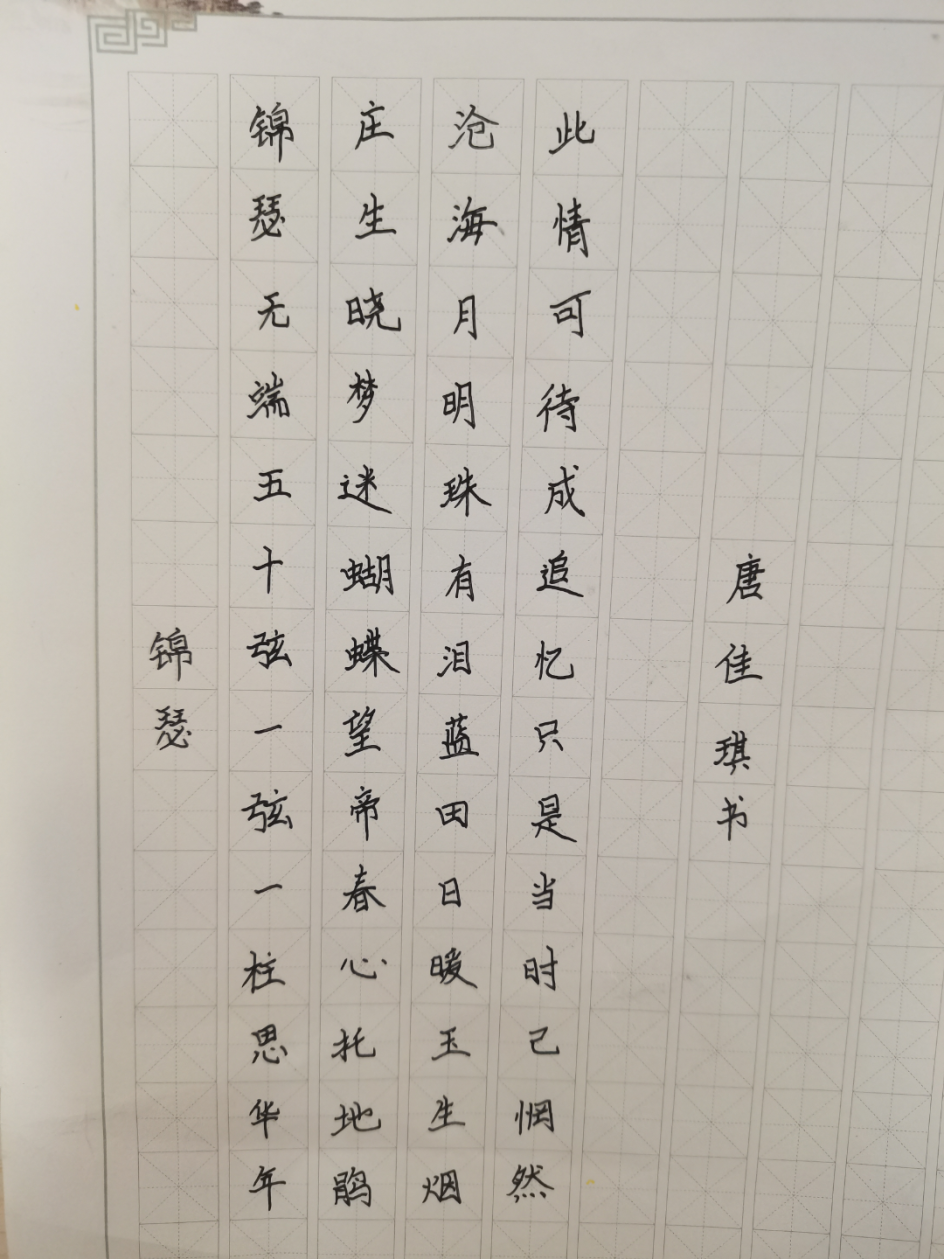 锦瑟
锦瑟无端五十弦一弦一柱思华年
庄生晓梦迷蝴蝶望帝春心托地鹃
沧海月明珠有泪蓝田日暖玉生烟
此情可待成追忆只是当时己惘然
唐佳琪书